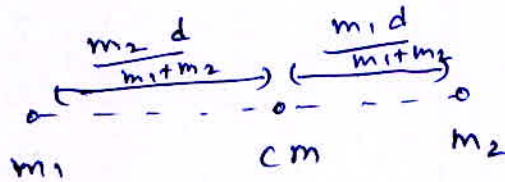 m₂ d / m₁+m₂    m₁ d / m₁+m₂
m₁    cm    m₂